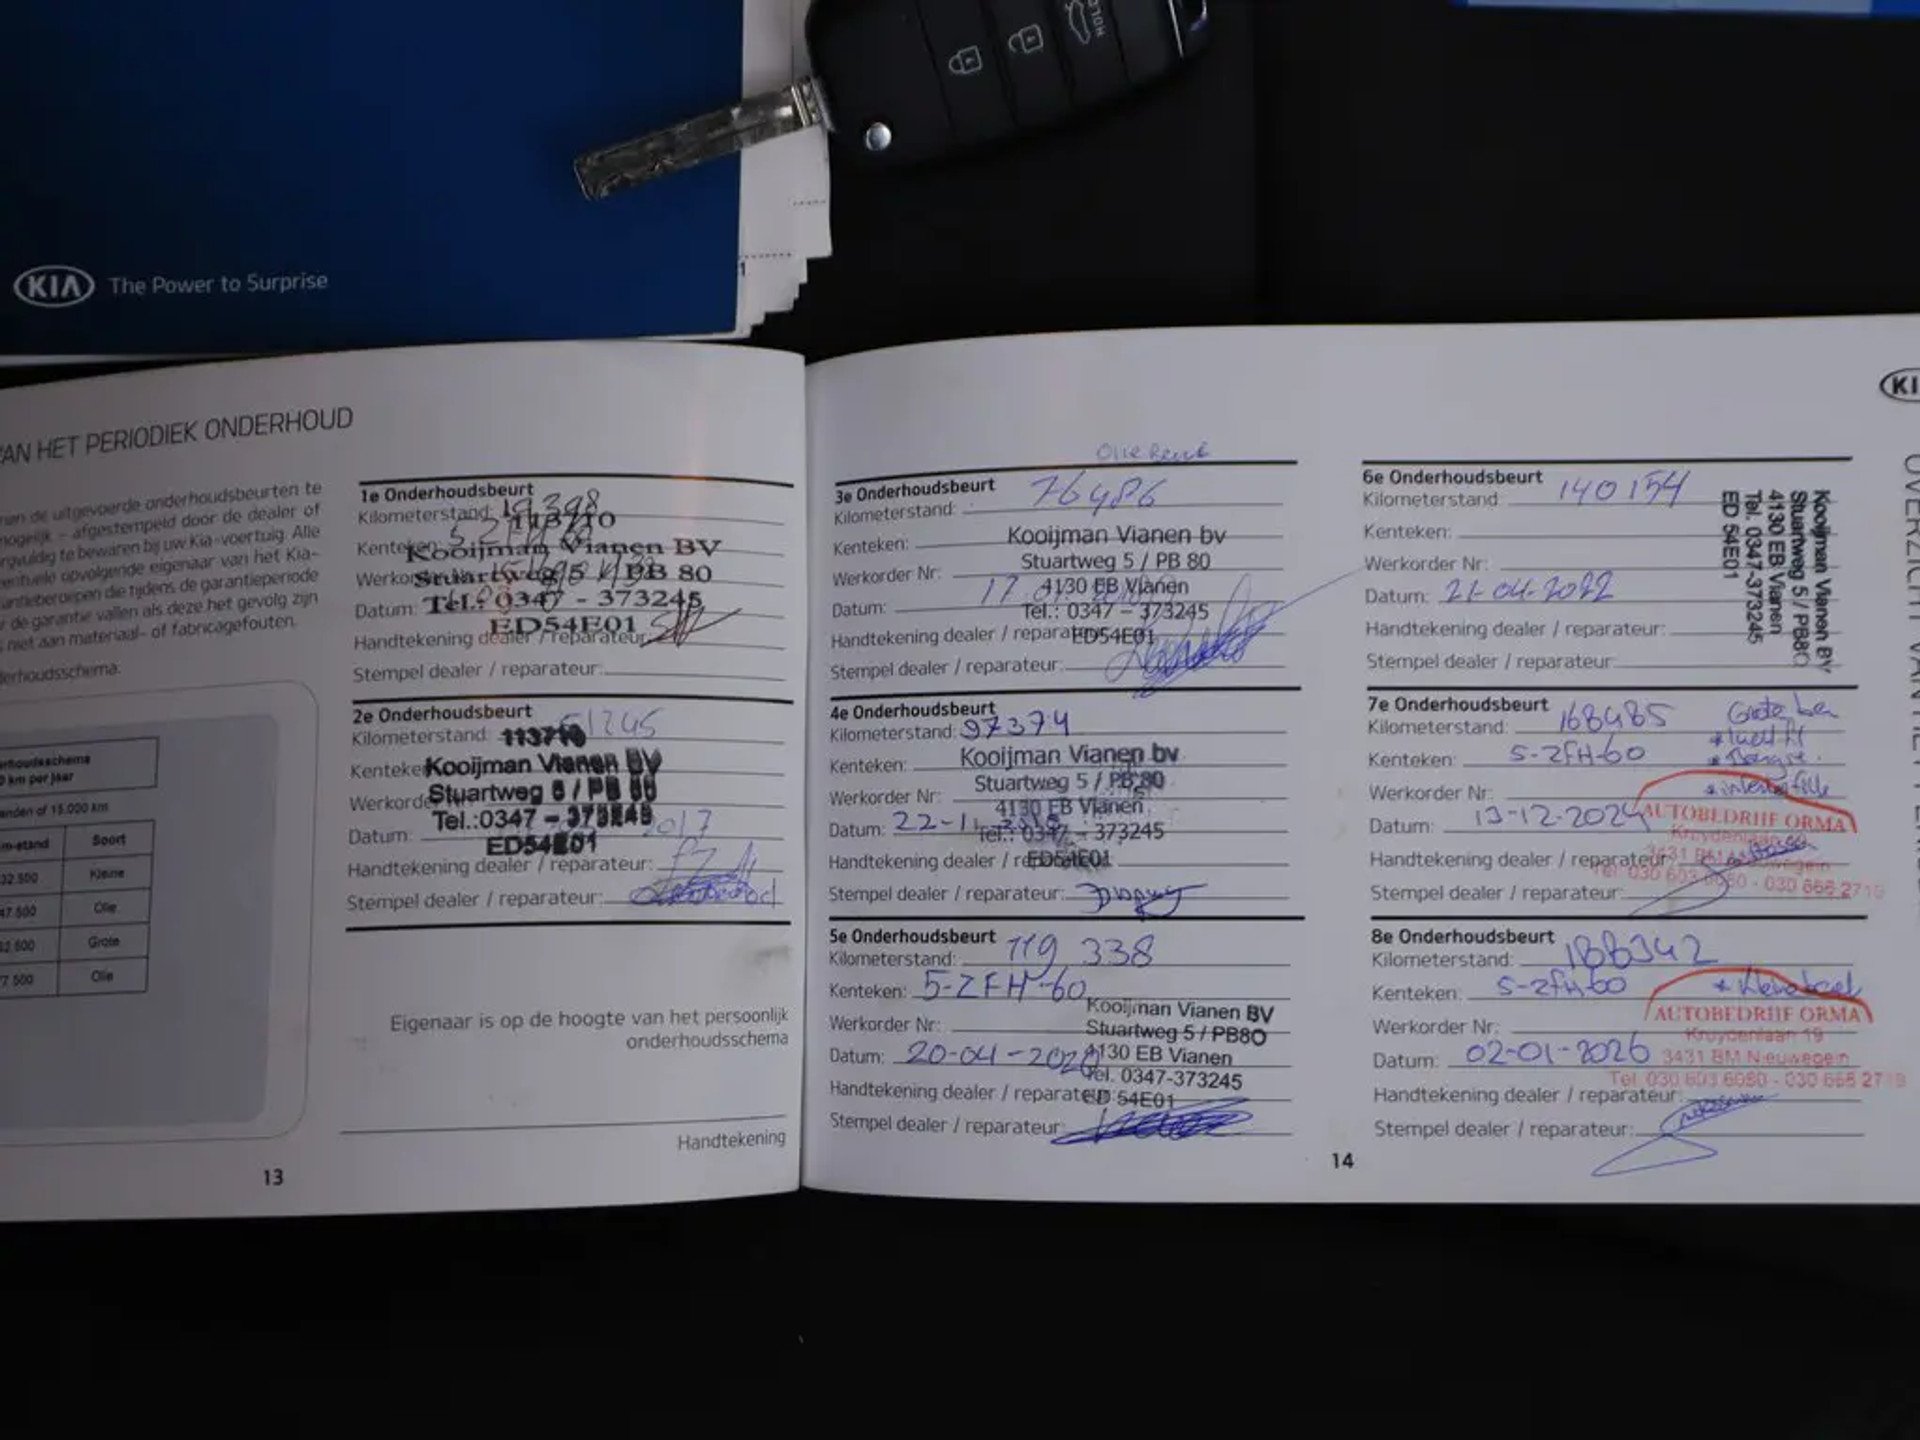 HOLD
KIA The Power to Surprise
KI
AN HET PERIODIEK ONDERHOUD
en de uitgevoerde onderhoudsbeurten te
mogelijk – afgestempeld door de dealer of
rgvuldig te bewaren bij uw Kia-voertuig. Alle
entuele opvolgende eigenaar van het Kia-
antieberoepen die tijdens de garantieperiode
r de garantie vallen als deze het gevolg zijn
niet aan materiaal- of fabricagefouten.
erhoudsschema:
erhoudsschema
0 km per jaar
anden of 15.000 km
m-stand Soort
32.500 Kleine
47.500 Olie
62.500 Grote
77.500 Olie
1e Onderhoudsbeurt
Kilometerstand: 19398
113710
Kenteken:
Kooijman Vianen BV
Stuartweg 5 / PB 80
Datum: Tel.: 0347 - 373245
ED54E01
Handtekening dealer / reparateur:
Stempel dealer / reparateur:
2e Onderhoudsbeurt
Kilometerstand: 51245
113710
Kooijman Vianen BV
Stuartweg 5 / PB 80
Tel.: 0347 - 373245
Datum: 2017
ED54E01
Handtekening dealer / reparateur:
Stempel dealer / reparateur:
Eigenaar is op de hoogte van het persoonlijk
onderhoudsschema
Handtekening
13
Olie Beurt
3e Onderhoudsbeurt
Kilometerstand: 76486
Kenteken: Kooijman Vianen bv
Stuartweg 5 / PB 80
Werkorder Nr:
4130 EB Vianen
Datum: 17
Tel.: 0347 – 373245
Handtekening dealer / reparateur:
ED54E01
Stempel dealer / reparateur:
4e Onderhoudsbeurt
Kilometerstand: 97374
Kooijman Vianen bv
Kenteken: Stuartweg 5 / PB 80
Werkorder Nr: 4130 EB Vianen
Datum: 22-11
Tel.: 0347 – 373245
Handtekening dealer / reparateur:
ED54E01
Stempel dealer / reparateur:
5e Onderhoudsbeurt
Kilometerstand: 119 338
Kenteken: 5-ZFH-60
Kooijman Vianen BV
Werkorder Nr: Stuartweg 5 / PB80
Datum: 20-04-2020 4130 EB Vianen
Tel. 0347-373245
Handtekening dealer / reparateur: ED 54E01
Stempel dealer / reparateur:
6e Onderhoudsbeurt
Kilometerstand 140154
Kenteken:
Werkorder Nr:
Datum: 21-04-2022
Handtekening dealer / reparateur:
Stempel dealer / reparateur:
Kooijman Vianen BV
Stuartweg 5 / PB80
4130 EB Vianen
Tel. 0347-373245
ED 54E01
7e Onderhoudsbeurt
Kilometerstand: 168485
Kenteken: 5-ZFH-60
Werkorder Nr:
Datum: 13-12-2024
AUTOBEDRIJF ORMA
Kruydenlaan
3431 BM Nieuwegein
Handtekening dealer / reparateur:
Tel. 030 603 6060 - 030 666 2715
Stempel dealer / reparateur:
8e Onderhoudsbeurt
Kilometerstand: 188342
Kenteken: 5-ZFH-60
AUTOBEDRIJF ORMA
Werkorder Nr: Kruydenlaan 19
Datum: 02-01-2026 3431 BM Nieuwegein
Tel. 030 603 6060 - 030 666 2715
Handtekening dealer / reparateur:
Stempel dealer / reparateur:
14
OVERZICHT VAN HET PERIO